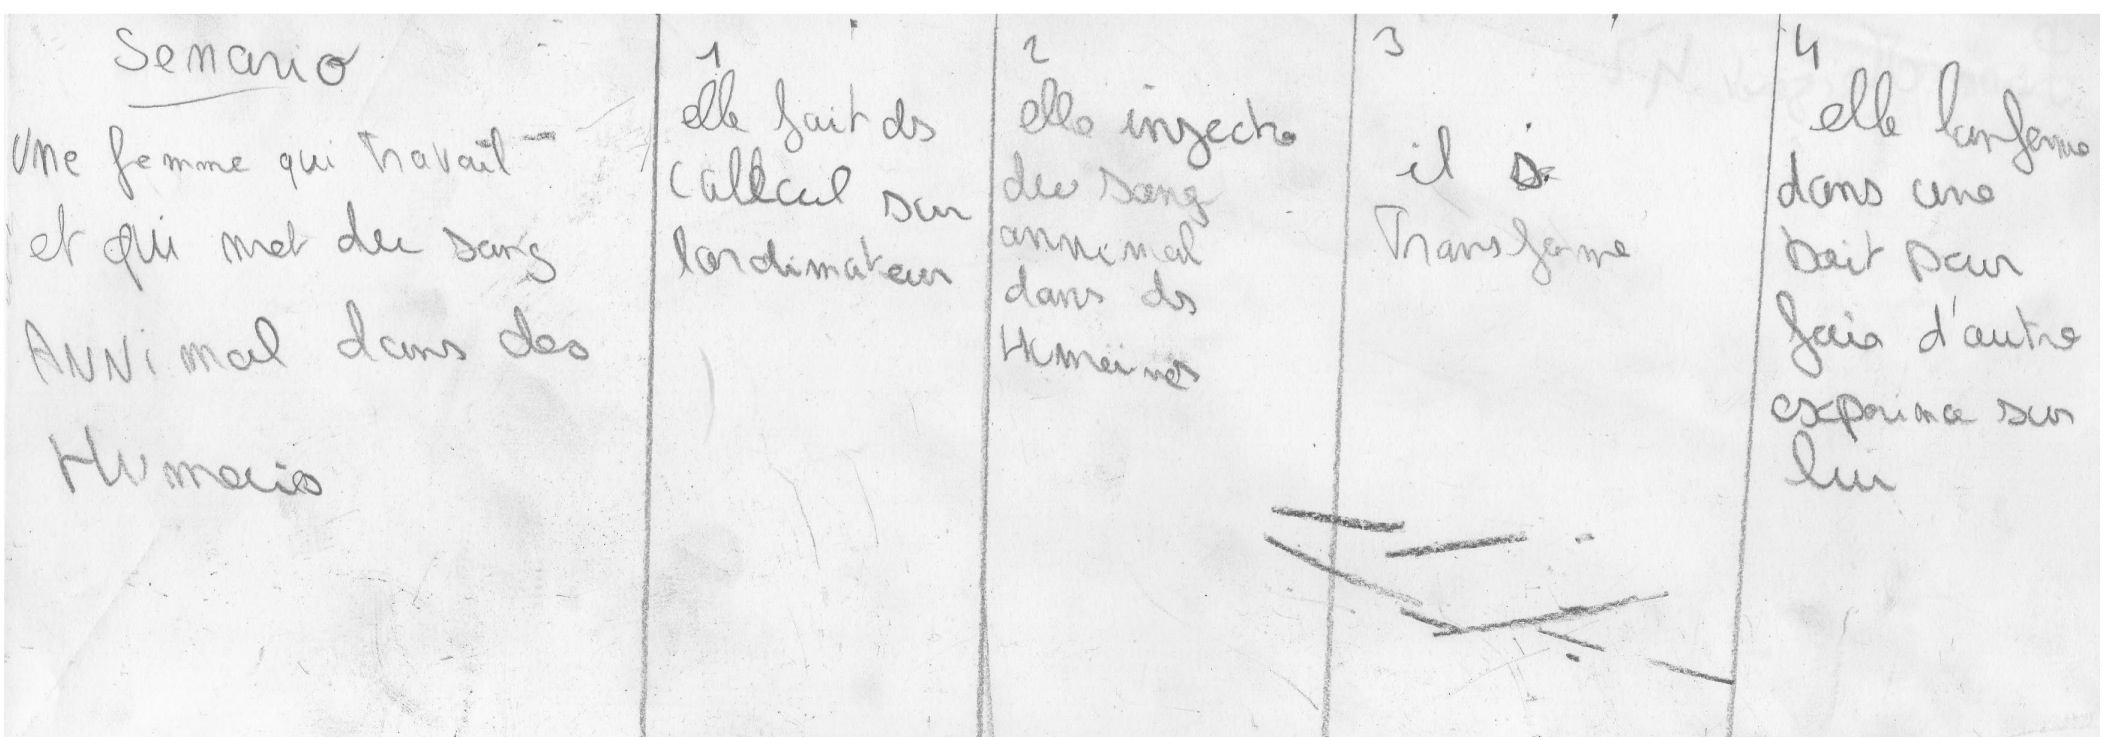 Senario
Une femme qui Travail
et qui met du sang
ANNimal dans des
HUmais
1
elle fait ds
callcul sur
lordinateur
2
elle injecte
du sang
annimal
dans ds
Humeines
3
il s
Transforme
4
elle lenferme
dans une
boit pour
faire d'autre
experince sur
lui